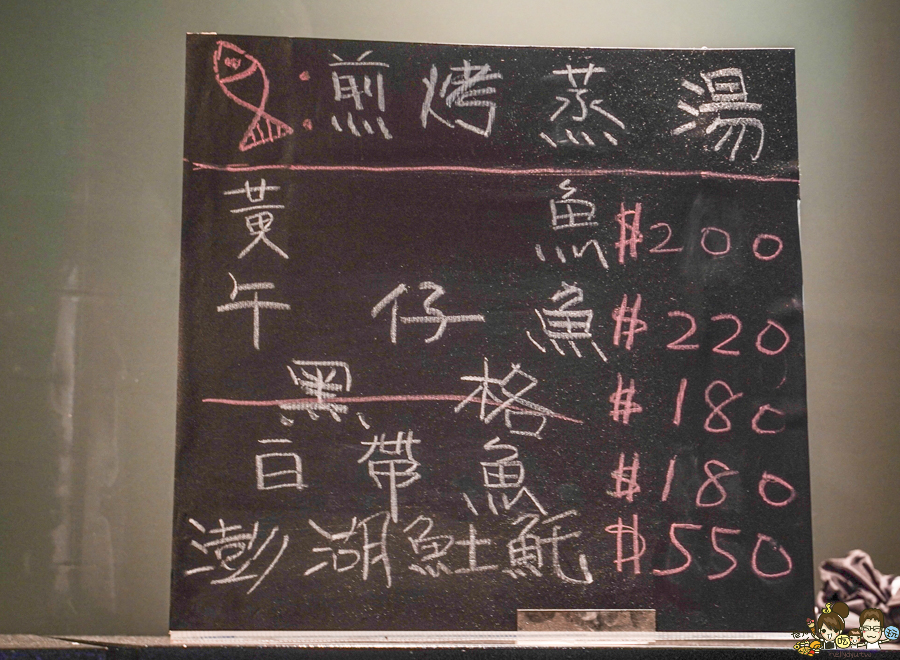 ：煎烤蒸湯
黃魚 $200
午仔魚 $220
黑格 $180
白帶魚 $180
澎湖𩵚魠 $550